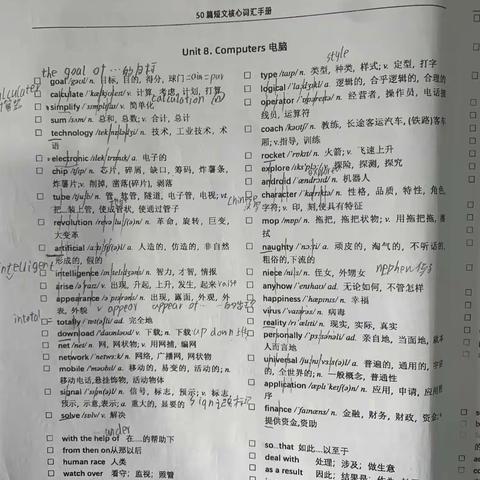 50 篇短文核心词汇手册
Unit 8. Computers 电脑
the goal of ···的目标
goal /gəʊl/ n. 目标, 目的, 得分, 球门
calculate v. 计算, 考虑, 计划, 打算
calculation (n)
simplify v. 简单化
sum /sʌm/ n. 总和, 总数; v. 合计, 总计
technology n. 技术, 工业技术, 术
语
electronic a. 电子的
chip /tʃɪp/ n. 芯片, 碎屑, 缺口, 筹码, 炸薯条,
炸薯片; v. 削掉, 凿落(碎片), 剥落
tube n. 管, 软管, 隧道, 电子管, 电视; vt.
把…装上管, 使成管状, 使通过管子
revolution n. 革命, 旋转, 巨变,
大变革
artificial a. 人造的, 仿造的, 非自然
形成的, 假的
intelligent
intelligence n. 智力, 才智, 情报
arise v. 出现, 升起, 上升, 发生, 起来 raise
appearance n. 出现, 露面, 外观, 外
表, 外貌 appear
totally ad. 完全地
download v. 下载; n. 下载 up down
net /net/ n. 网, 网状物; v. 用网捕, 编网
network n. 网络, 广播网, 网状物
mobile a. 移动的, 易变的, 活动的; n.
移动电话, 悬挂饰物, 活动物体
signal n. 信号, 标志, 预示; v. 标志,
预示, 示意, 表示; a. 重大的, 显要的 sign
solve v. 解决
under
with the help of 在…的帮助下
from then on 从那以后
human race 人类
watch over 看守; 监视; 照管
style
type /taɪp/ n. 类型, 种类, 样式; v. 定型, 打字
logical a. 逻辑的, 合乎逻辑的, 合理的
operator n. 经营者, 操作员, 电话接
线员, 运算符
coach /kəʊtʃ/ n. 教练, 长途客运汽车, (铁路)客车
厢; v. 指导, 训练
rocket n. 火箭; v. 飞速上升
explore v. 探险, 探测, 探究
android n. 机器人
character n. 性格, 品质, 特性, 角色,
字符; v. 印, 刻, 使具有特征
mop /mɒp/ n. 拖把, 拖把状物; v. 用拖把拖,
拭
naughty a. 顽皮的, 淘气的, 不听话的,
粗俗的, 下流的
niece /niːs/ n. 侄女, 外甥女
anyhow ad. 无论如何, 不管怎样
happiness n. 幸福
virus n. 病毒
reality n. 现实, 实际, 真实
personally ad. 亲自地, 当面地, 就本
人而言地
universal a. 普遍的, 通用的, 宇宙
的, 全世界的; n. 一般概念, 普通性
application n. 应用, 申请, 应用
序
finance n. 金融, 财务, 财政, 资金; v.
提供资金, 资助
so...that 如此…以至于
deal with 处理; 涉及; 做生意
as a result 因此; 结果是